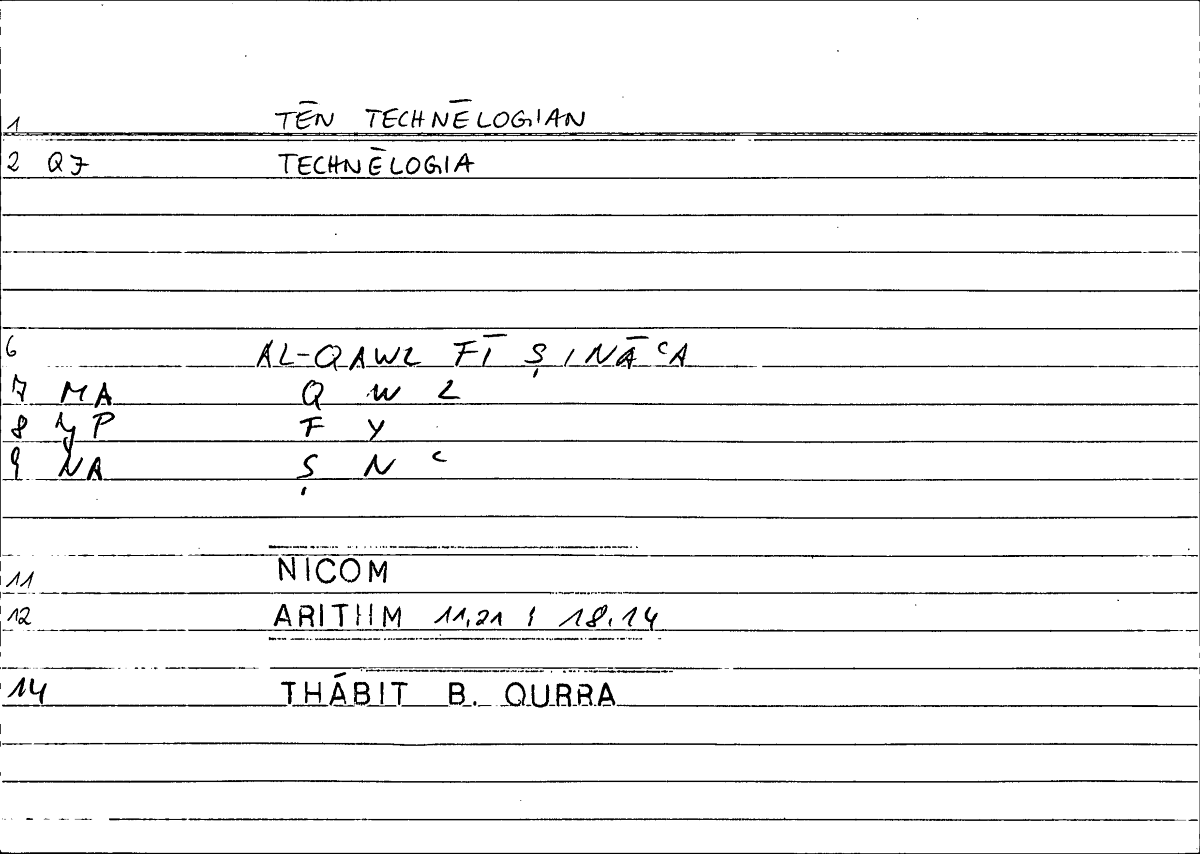 1 TĒN TECHNĒLOGIAN
2 Q7 TECHNĒLOGIA
6 AL-QAWL FĪ ṢINĀʿA
7 MA Q W L
8 YP F Y
9 NA Ṣ N ʿ
11 NICOM
12 ARITHM 11,21 ; 18.14
14 THĀBIT B. QURRA